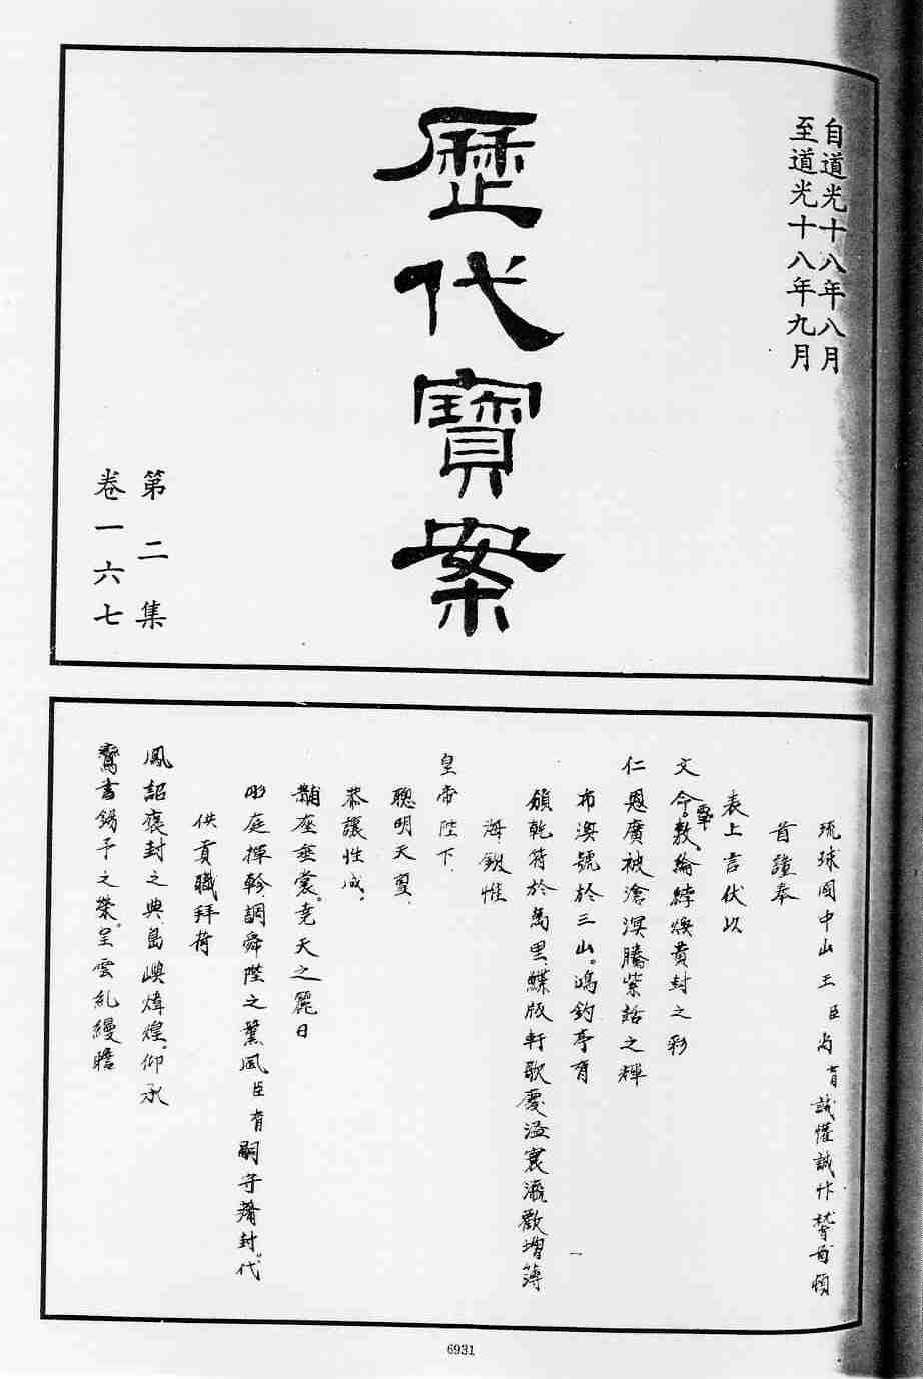 自道光十八年八月
至道光十八年九月
歷代寶案
第二集
卷一六七
琉球國中山王臣尚育誠懽誠忭稽首頓
首謹奉
表上言伏以
文命覃敷綸綍煥黃封之彩
仁恩廣被滄溟騰紫誥之輝
布渙號於三山鴻鈞亭育
頒乾符於萬里鰈版軒歌慶溢寰瀛歡增薄
海欽惟
皇帝陛下
聰明天亶
恭讓性成
黼座垂裳堯天之麗日
彤庭揮軫調舜陛之薰風臣育嗣守藩封代
供貢職拜荷
鳳詔褒封之典島嶼煒煌仰承
鸞書錫予之榮呈雲糺縵瞻
一
6931